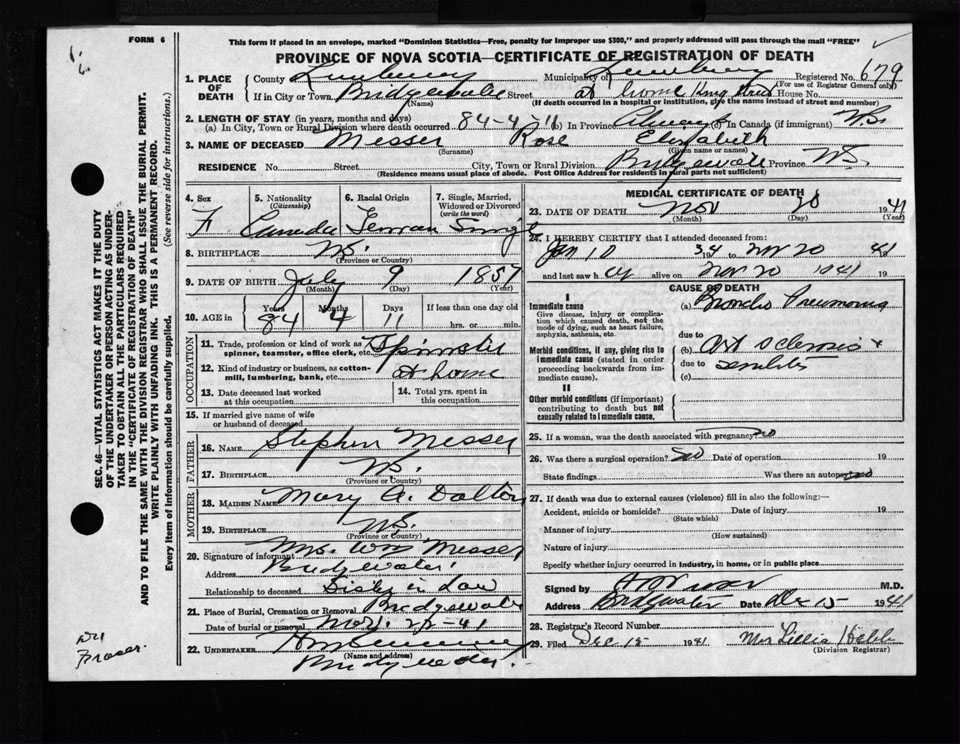 FORM 6
This form if placed in an envelope, marked "Dominion Statistics—Free, penalty for improper use $300," and properly addressed will pass through the mail "FREE"
PROVINCE OF NOVA SCOTIA—CERTIFICATE OF REGISTRATION OF DEATH
1. PLACE OF DEATH County Lunenburg Municipality of Lunenburg Registered No. 679
(For use of Registrar General only)
If in City or Town Bridgewater Street at home King Street House No.
(Name) (If death occurred in a hospital or institution, give the name instead of street and number)
2. LENGTH OF STAY (in years, months and days)
(a) In City, Town or Rural Division where death occurred 84-4-11 (b) In Province Always (c) In Canada (if immigrant) N.S.
3. NAME OF DECEASED Messer Rose Elizabeth
(Surname) (Given name or names)
RESIDENCE No. Street City, Town or Rural Division Bridgewater Province N.S.
(Residence means usual place of abode. Post Office Address for residents in rural parts not sufficient)
4. Sex 5. Nationality (Citizenship) 6. Racial Origin 7. Single, Married, Widowed or Divorced (write the word)
F Canadian German Single
8. BIRTHPLACE N.S.
(Province or Country)
9. DATE OF BIRTH July 9 1857
(Month) (Day) (Year)
10. AGE in Years Months Days If less than one day old
84 4 11 hrs. or min.
OCCUPATION
11. Trade, profession or kind of work as spinner, teamster, office clerk, etc. Spinster
12. Kind of industry or business, as cotton-mill, lumbering, bank, etc. at home
13. Date deceased last worked at this occupation 14. Total yrs. spent in this occupation
15. If married give name of wife or husband of deceased
FATHER
16. NAME Stephen Messer
17. BIRTHPLACE N.S.
(Province or Country)
MOTHER
18. MAIDEN NAME Mary A. Dalton
19. BIRTHPLACE N.S.
(Province or Country)
20. Signature of informant Mrs. Wm Messer
Address Bridgewater
Relationship to deceased Sister in law
21. Place of Burial, Cremation or Removal Bridgewater
Date of burial or removal Nov. 22-41
22. UNDERTAKER
(Name and address)
Bridgewater.
MEDICAL CERTIFICATE OF DEATH
23. DATE OF DEATH Nov 20 1941
(Month) (Day) (Year)
24. I HEREBY CERTIFY that I attended deceased from:
Jan 10 34 to Nov 20 41
and last saw h er alive on Nov 20 1941 19
CAUSE OF DEATH
I
Immediate cause (a) Broncho Pneumonia
Give disease, injury or complication which caused death, not the mode of dying, such as heart failure, asphyxia, asthenia, etc.
due to
Morbid conditions, if any, giving rise to immediate cause (stated in order proceeding backwards from immediate cause). (b) Art sclerosis +
due to senility
(c)
II
Other morbid conditions (if important) contributing to death but not causally related to immediate cause.
25. If a woman, was the death associated with pregnancy? no
26. Was there a surgical operation? no Date of operation 19
State findings Was there an autopsy? no
27. If death was due to external causes (violence) fill in also the following:—
Accident, suicide or homicide? Date of injury 19
(State which)
Manner of injury
(How sustained)
Nature of injury
Specify whether injury occurred in industry, in home, or in public place
Signed by M.D.
Address Bridgewater Date Dec 15 1941
28. Registrar's Record Number
29. Filed Dec 15 1941 Mrs Lillia Hebb
(Division Registrar)
SEC. 46—VITAL STATISTICS ACT MAKES IT THE DUTY
OF THE UNDERTAKER OR PERSON ACTING AS UNDER-
TAKER TO OBTAIN ALL THE PARTICULARS REQUIRED
IN THE "CERTIFICATE OF REGISTRATION OF DEATH"
AND TO FILE THE SAME WITH THE DIVISION REGISTRAR WHO SHALL ISSUE THE BURIAL PERMIT.
WRITE PLAINLY WITH UNFADING INK. THIS IS A PERMANENT RECORD.
Every item of information should be carefully supplied. (See reverse side for instructions.)
Fraser.